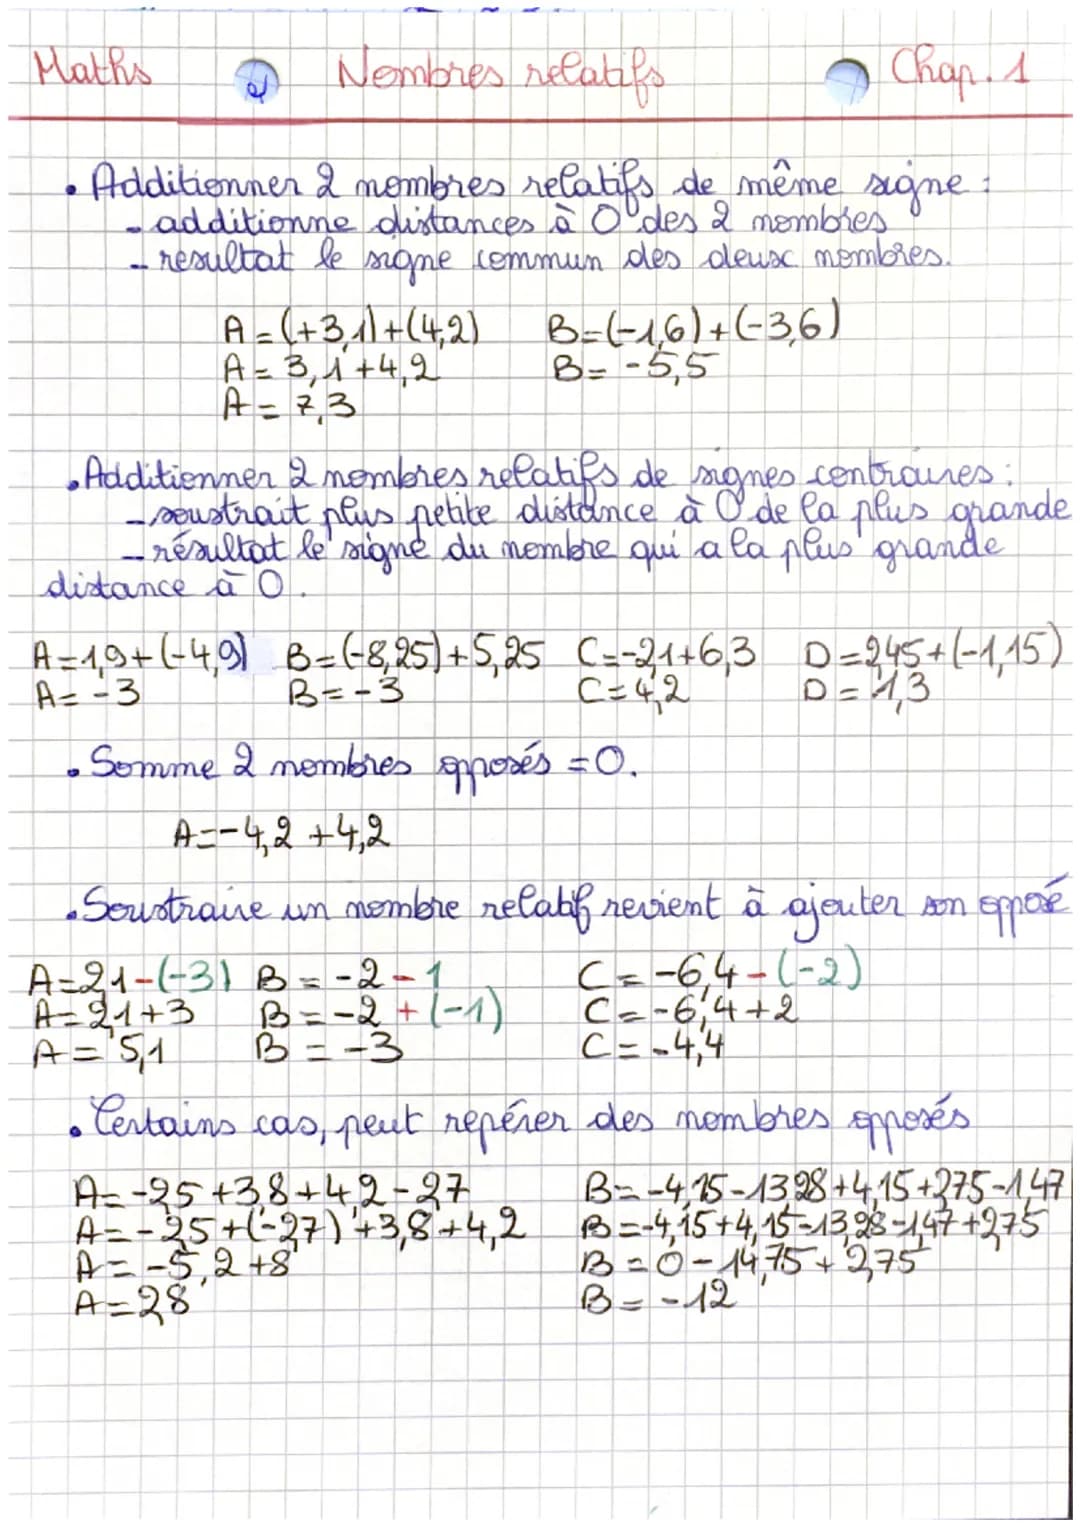 Maths Nombres relatifs Chap. 1
• Additionner 2 nombres relatifs de même signe :
- additionne distances à 0 des 2 nombres
- resultat le signe commun des deux nombres.
A = (+3,1)+(4,2) B=(-1,6)+(-3,6)
A = 3,1+4,2 B= -5,5
A = 7,3
• Additionner 2 nombres relatifs de signes contraires :
- soustrait plus petite distance à 0 de la plus grande
- résultat le signe du nombre qui a la plus grande
distance à 0.
A=1,9+(-4,9) B=(-8,25)+5,25 C=-2,1+6,3 D=2,45+(-1,15)
A= -3 B= -3 C= 4,2 D = 1,3
• Somme 2 nombres opposés = 0.
A=-4,2 +4,2
• Soustraire un nombre relatif revient à ajouter son opposé
A=2,1-(-3) B = -2-1 C = -6,4-(-2)
A=2,1+3 B=-2+(-1) C=-6,4+2
A = 5,1 B = -3 C= -4,4
• Certains cas, peut repérer des nombres opposés
A=-2,5+3,8+4,2-2,7 B=-4,15-13,28+4,15+2,75-1,47
A=-2,5+(-2,7)+3,8+4,2 B=-4,15+4,15-13,28-1,47+2,75
A=-5,2+8 B=0-14,75+2,75
A=2,8 B= -12